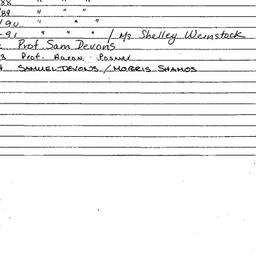 88 " " "
/89 " " "
/90 " " "
-91 " " " / Ms Shelley Weinstock
Prof. Sam Devons
3 Prof.
4 SAMUEL DEVONS / MORRIS SHAMOS